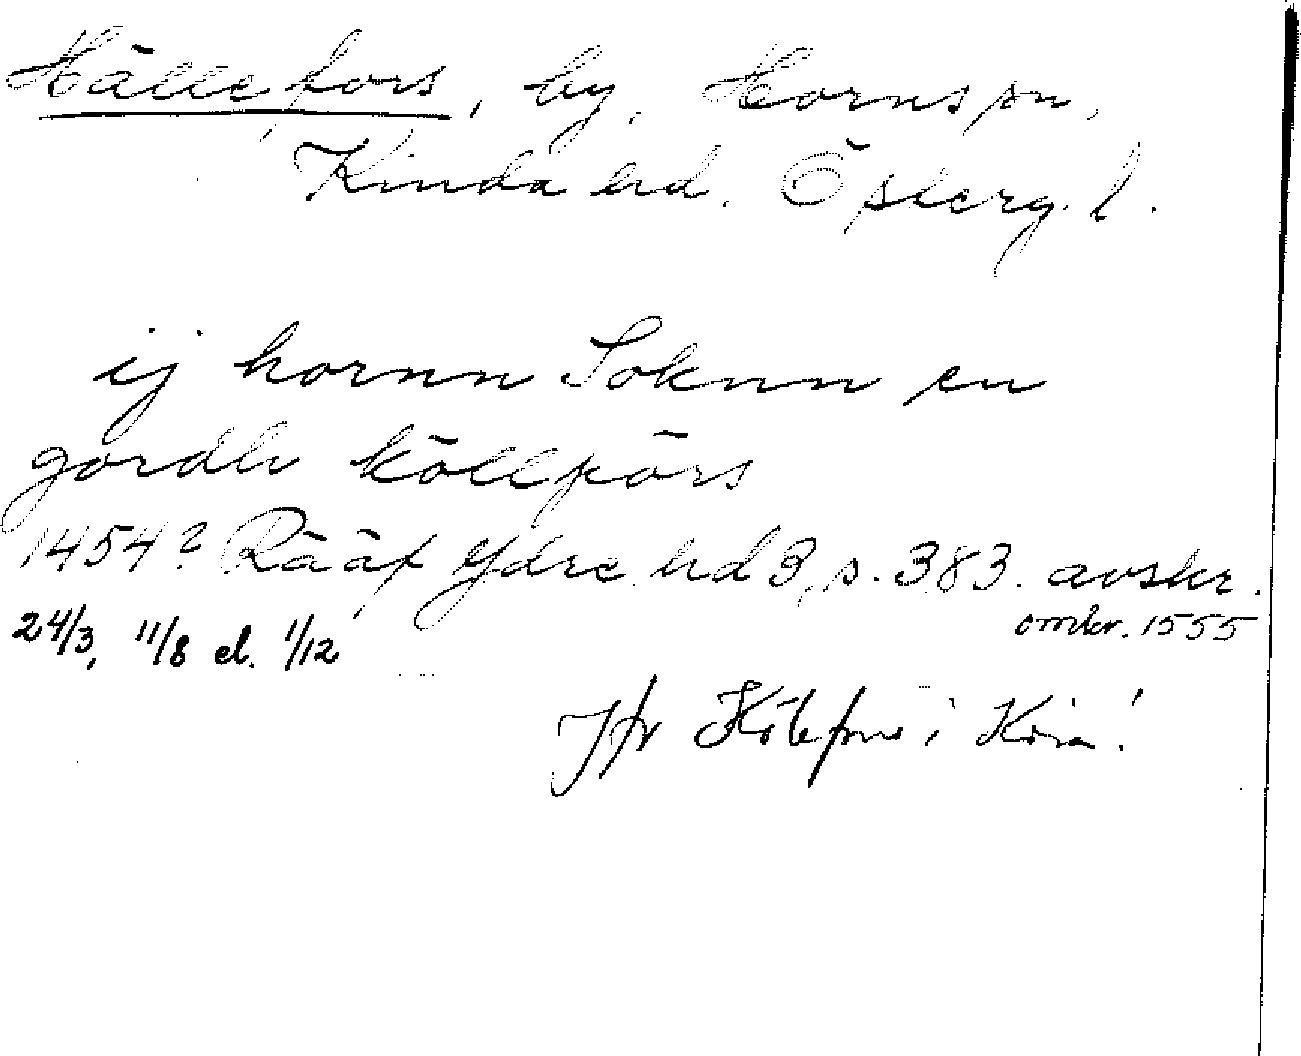 Hällefors, by, Horns sn,
Kinda hd. Österg. l.
ij hornn Soknn en
gordh köllförs
1454? Rääf Ydre hd 3, s. 383. avskr.
omkr. 1555
24/3, 11/8 el. 1/12
Jfr i Kisa!